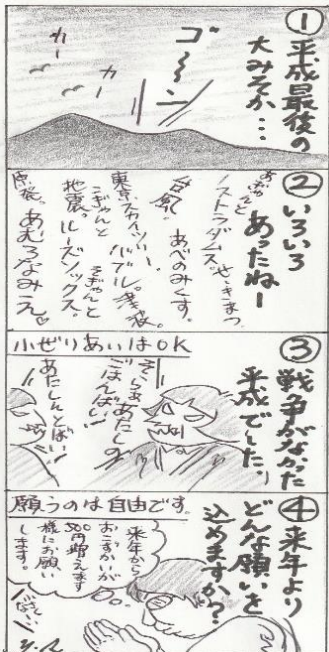 ①平成最後の
大みそか…
ゴ〜〜ン
カー
カー
②いろいろ
あったねー
おぎゃんと
ノストラダムス。せいきまつ
台風。あべのみくす。
東京スカイツリー。バブル。
こぎゃんと
地震。ルーズソックス。
原発。あむろなみえ。
小ぜりあいはOK
③戦争がなかった
平成でした。
そらぁあたしの
ごはんばい!
あたしんとばい!
願うのは自由です。
④来年より
どんな願いを
込めますか?
来年から
おこづかいが
500円増えます
様にお願い
します。